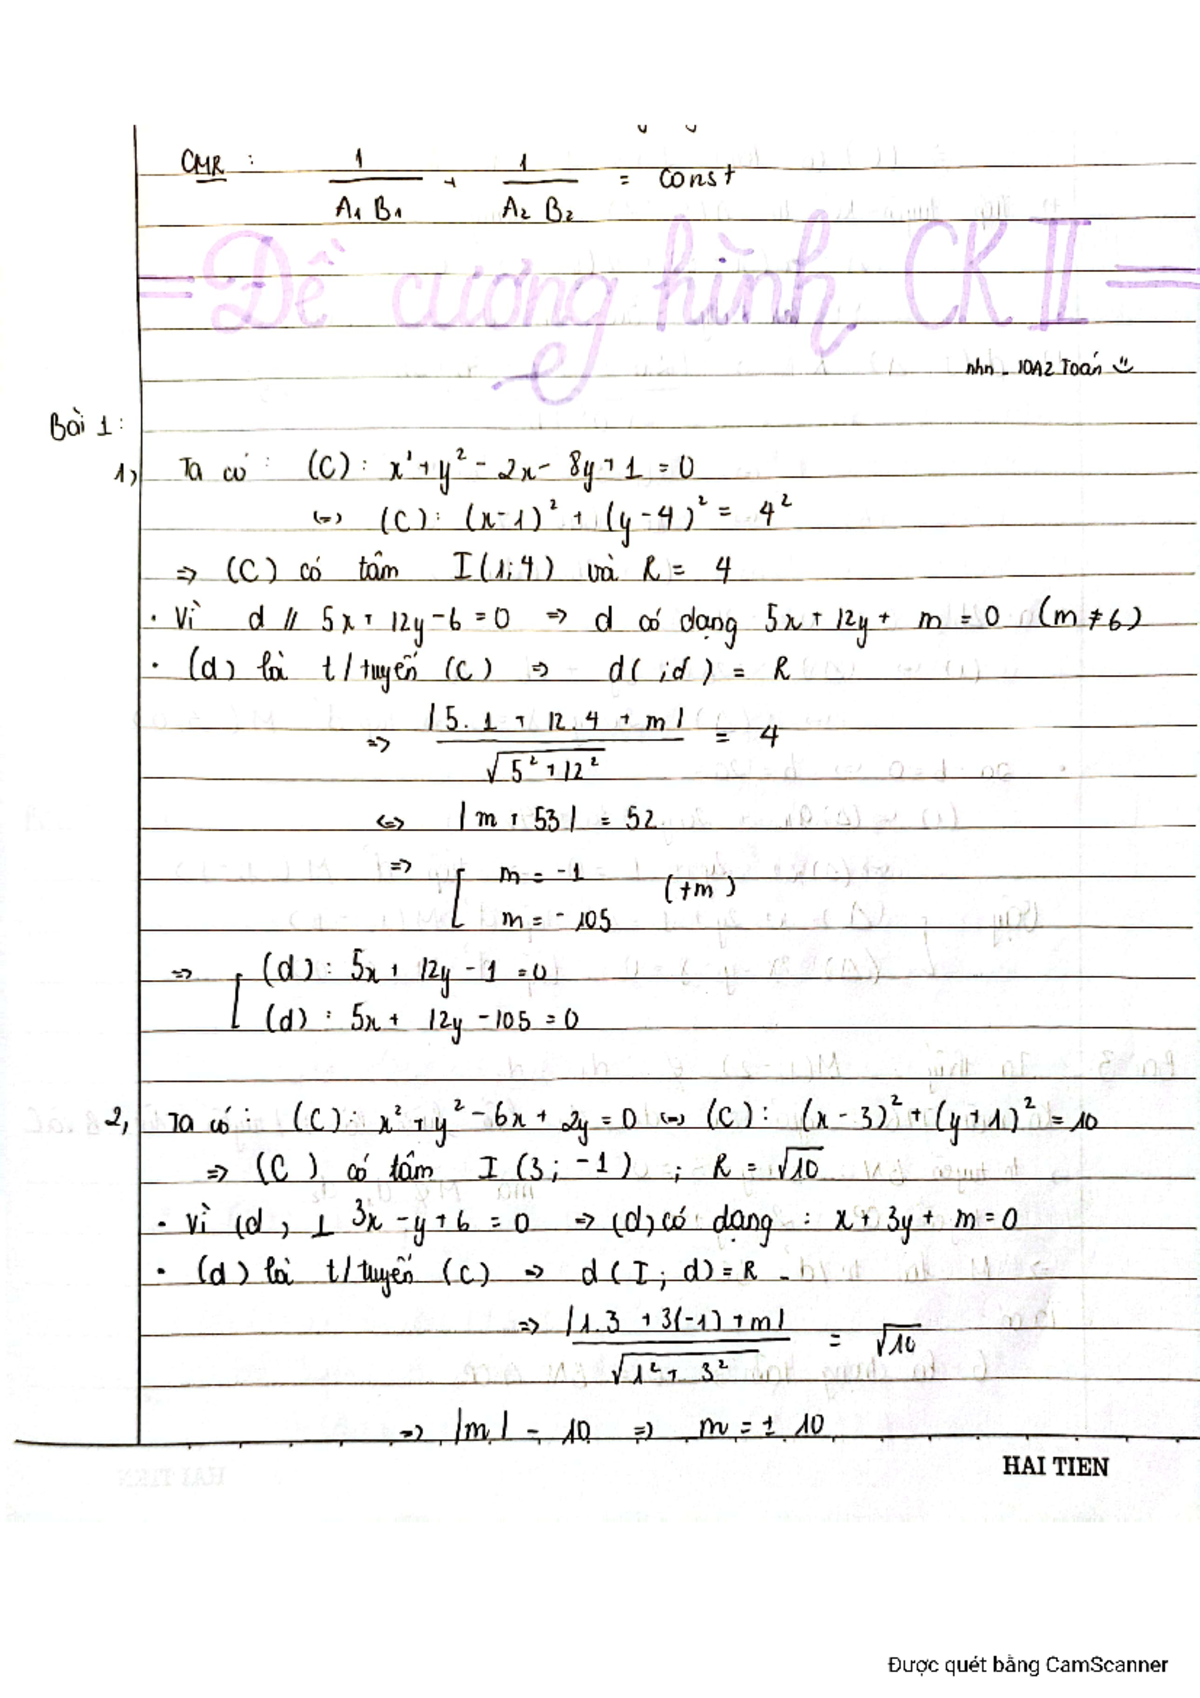 CMR : 1/(A₁ B₁) + 1/(A₂ B₂) = const
= Đề cương hình CK II =
nhn - 10A2 Toán
Bài 1:
1) Ta có : (C) : x² + y² - 2x - 8y + 1 = 0
<=> (C) : (x-1)² + (y-4)² = 4²
=> (C) có tâm I(1;4) và R = 4
• Vì d // 5x + 12y - 6 = 0 => d có dạng 5x + 12y + m = 0 (m ≠ 6)
• (d) là t/tuyến (C) => d( ;d) = R
=> |5.1 + 12.4 + m| / √(5² + 12²) = 4
<=> |m + 53| = 52
=> [ m = -1
m = -105 (tm)
=> [ (d) : 5x + 12y - 1 = 0
(d) : 5x + 12y - 105 = 0
2, Ta có : (C) : x² + y² - 6x + 2y = 0 <=> (C) : (x - 3)² + (y + 1)² = 10
=> (C) có tâm I (3 ; -1) ; R = √10
• Vì (d) ⊥ 3x - y + 6 = 0 => (d) có dạng : x + 3y + m = 0
• (d) là t/tuyến (C) => d(I ; d) = R
=> |1.3 + 3(-1) + m| / √(1² + 3²) = √10
=> |m| = 10 => m = ± 10
HAI TIEN
Được quét bằng CamScanner